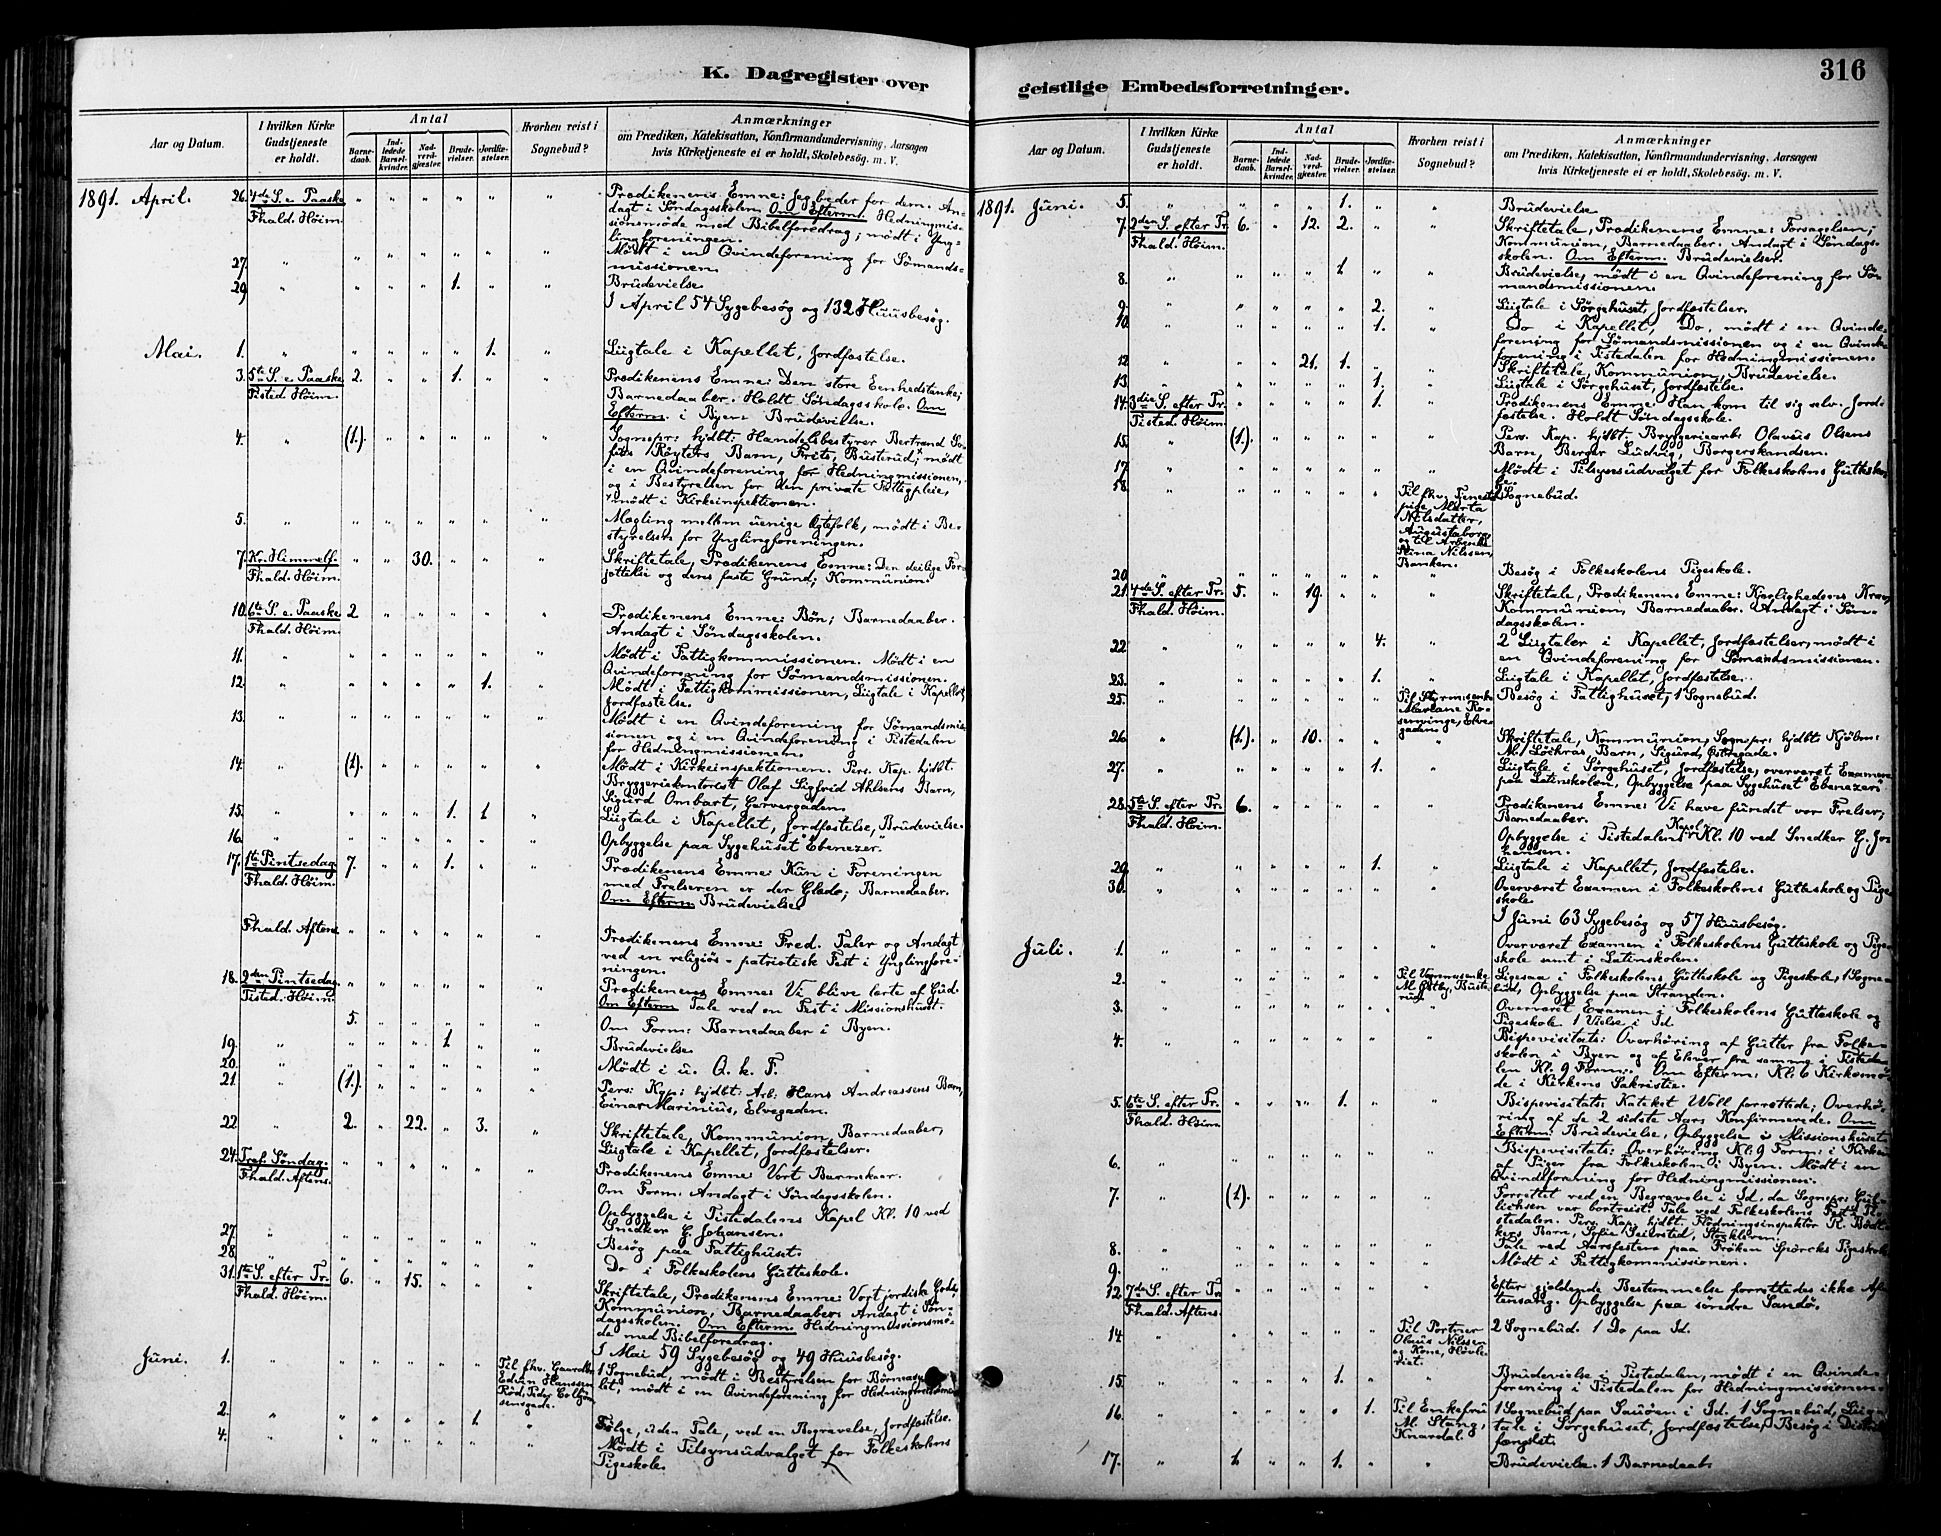 K. Dagregister over
Aar og Datum.
I hvilken Kirke Gudstjeneste er holdt.
Antal
Barnedaab.
Indledede Barselkvinder.
Nadverdgjester.
Brudevielser.
Jordfæstelser.
Hvorhen reist i Sognebud?
Anmærkninger
om Prædiken, Katekisation, Konfirmandundervisning, Aarsagen
hvis Kirketjeneste ei er holdt, Skolebesøg. m. V.
1891. April. 26. 4de S. e. Paaske Prædikenens Emne: Jeg beder for dem. An-
Fhald. Høim. dagt i Søndagsskolen. Om Efterm. Hedningmis-
sionsmøde med Bibelforedrag; mødt i Yng-
lingforeningen.
27. Mødt i en Qvindeforening for Sømands-
missionen.
29. 1. Brudevielse.
I April 54 Sygebesøg og 132 Huusbesøg.
Mai. 1. 1. Liigtale i Kapellet, Jordfæstelse.
3. 5te S. e. Paaske 2. 1. Prædikenens Emne: Den store Eenhedstanke;
Tisted. Høim. Barnedaaber. Holdt Søndagsskole. Om
Efterm. i Byen Brudevielse.
4. (1). Sognepr: hjdbt: Handelsbestyrer Bertrand
Barn, Frits, Busterud; mødt
i en Qvindeforening for Hedningmissionen,
og i Bestyrelsen for den private Fattigpleie,
mødt i Kirkeinspektionen.
5. Mægling mellem uenige Egtefolk, mødt i Be-
styrelsen for Ynglingforeningen.
7. Kr. Himmelf. 30. Skriftetale, Prædikenens Emne: Den deilige For-
Fhald. Høim. jættelse og dens faste Grund; Kommunion.
10. 6te S. e. Paaske 2 Prædikenens Emne: Bøn; Barnedaaber.
Fhald. Høim. Andagt i Søndagsskolen.
11. Mødt i Fattigkommissionen. Mødt i en
Qvindeforening for Sømandsmissionen.
12. 1. Mødt i Fattigkommissionen, Liigtale i Kapellet,
Jordfæstelse.
13. Mødt i en Qvindeforening for Sømandsmis-
sionen og i en Qvindeforening i Tistedalen
for Hedningmissionen.
14. (1). Mødt i Kirkeinspektionen. Pers. Kap. hjdbt.
Bryggerikontorist Olaf Sigfrid Ahlsens Barn,
Sigurd Ombart, Garvergaden.
15. 1. 1 Liigtale i Kapellet, Jordfæstelse, Brudevielse.
16. Opbyggelse paa Sygehuset Ebenezer.
17. 1te Pintsedag 7. 1. Prædikenens Emne: Kun i Foreningen
Fhald. Høim. med Frelseren er der Glæde; Barnedaaber.
Om Efterm Brudevielse
Fhald. Aftens. Prædikenens Emne: Fred. Taler og Andagt
ved en religiøs-patriotisk Fest i Ynglingfore-
ningen.
18. 2den Pintsedag Prædikenens Emne: Vi blive lærte af Gud.
Tisted. Høim. Om Efterm Tale ved en Fest i Missionshuset.
5. Om Form: Barnedaaber i Byen.
19. 1 Brudevielse
20. Mødt i u. Q. k. F.
21. (1). Pers: Kap: hjdbt: Arb: Hans Andreassens Barn,
Einar Marinius, Elvegaden.
22 2. 22. 3. Skriftetale, Kommunion, Barnedaaber,
Liigtale i Kapellet, Jordfæstelser.
24. Tref. Søndag. Prædikenens Emne: Vort Barnekaar.
Fhald. Aftens. Om Form: Andagt i Søndagsskolen.
Opbyggelse i Tistedalens Kapel Kl. 10 ved
Snedker G. Johansen.
27. Besøg paa Fattighuset.
28. Do i Folkeskolens Gutteskole.
31. 1te S. efter Tr. 6. 15. Skriftetale, Prædikenens Emne: Vort jordiske Gods;
Fhald. Høim. Kommunion, Barnedaaber. Andagt i Søn-
dagsskolen. Om Efterm. Hedningmissionsmø-
de med Bibelforedrag.
I Mai 59 Sygebesøg og 49 Huusbesøg.
Juni. 1. Til fhv. Gaardbr. Edvin Hanssen Rød, Peder Colbjørnsensgade. 1 Sognebud, mødt i Bestyrelsen for Børneasy-
let, mødt i en Qvindeforening for Hedningmissionen
2. 1 Følge, uden Tale, ved en Begravelse, Jordfæstelse.
4. Mødt i Tilsynsudvalget for Folkeskolens
Pigeskole.
geistlige Embedsforretninger.
316
Aar og Datum.
I hvilken Kirke Gudstjeneste er holdt.
Antal
Barnedaab.
Indledede Barselkvinder.
Nadverdgjester.
Brudevielser.
Jordfæstelser.
Hvorhen reist i Sognebud?
Anmærkninger
om Prædiken, Katekisation, Konfirmandundervisning, Aarsagen
hvis Kirketjeneste ei er holdt, Skolebesøg. m. V.
1891. Juni. 5. 1. Brudevielse
7. 2den S. efter Tr. 6. 12. 2. Skriftetale, Prædikenens Emne: Forsagelsen;
Fhald. Høim. Kommunion, Barnedaaber. Andagt i Søndags-
skolen. Om Efterm. Brudevielser.
8. 1 Brudevielse, mødt i en Qvindeforening for Sø-
mandsmissionen.
9. 2. Liigtale i Sørgehuset, Jordfæstelser.
10. 1. Do i Kapellet, Do, mødt i en Qvinde-
forening for Sømandsmissionen og i en Qvinde-
forening i Tistedalen for Hedningmissionen.
12 21. 1. Skriftetale, Kommunion, Brudevielse.
13. 1. Liigtale i Sørgehuset, Jordfæstelse.
14. 3die S. efter Tr. 1. Prædikenens Emne: Han kom til sig selv. Jord-
Tisted. Høim. fæstelse. Holdt Søndagsskole.
15. (1). Pers. Kap. hjdbt. Bryggeriearb. Olavus Olsens
Barn, Berger Ludvig, Borgerskandsen.
17 Mødt i Tilsynsudvalget for Folkeskolens Guttesko-
le.
18. Til fhv. Tjenestepige Marta Nilsdatter, Augustaborg og til Arbeids Stina Nilssen, Banken. Sognebud.
20. Besøg i Folkeskolens Pigeskole.
21. 4de S. efter Tr. 5. 19. Skriftetale, Prædikenens Emne: Kjærlighedens Krav;
Fhald. Høim. Kommunion, Barnedaaber. Andagt i Søn-
dagsskolen.
22 4. 2 Liigtaler i Kapellet, Jordfæstelser, mødt i
en Qvindeforening for Sømandsmissionen.
23. 1. Liigtale i Kapellet, Jordfæstelse.
25. Til Styrmsenke Mariane Rosenvinge, Elvegaden. Besøg i Fattighuset, 1 Sognebud.
26. (1.). 10. Skriftetale, Kommunion, Sognpr: hjdbt: Kjøbm:
M. Barn, Sigurd, Østregade.
27. 1. Liigtale i Sørgehuset, Jordfæstelse, overværet Examen
paa Latinskolen, Opbyggelse paa Sygehuset Ebenezer.
28. 5te S. efter Tr. 6. Prædikenens Emne: Vi have fundet vor Frelser;
Fhald. Høim. Barnedaaber.
Opbyggelse i Tistedalens Kapel Kl. 10 ved Snedker G. Jo-
hansen.
29. 1. Liigtale i Kapellet, Jordfæstelse.
30. Overværet Examen i Folkeskolens Gutteskole og Pige-
skole.
I Juni 63 Sygebesøg og 57 Huusbesøg.
Juli. 1. Overværet Examen i Folkeskolens Gutteskole og Pige-
skole samt i Latinskolen.
2. Ligesaa i Folkeskolens Gutteskole og Pigeskole, 1 Sogne-
bud, Opbyggelse paa Stranden.
3. Overværet Examen i Folkeskolens Gutteskole og
Pigeskole. 1 Vielse i Id.
4. Bispevisitats: Overhøring af Gutter fra Folke-
skolen i Byen og af Elever fra samme i Tisteda-
len Kl. 9 Form: Om Efterm: Kl: 6 Kirkemø-
de i Kirkens Sakristie.
5. 6te S. efter Tr. 1. Bispevisitats: Kateket Wall forrettede; Overhø-
Fhald. Høim. ring af de 2 sidste Aars Konfirmerede. Om
Efterm: Brudevielse, Opbyggelse i Missionshuset.
6. Bispevisitats: Overhøring Kl: 9 Form: i Kirken
af Piger fra Folkeskolen i Byen. Mødt i en
Qvindeforening for Hedningmissionen.
7. (1). Forrettet ved en Begravelse i Id, da Sognepr: Gul-
lichsen var bortreist. Tale ved Folkeskolens Fest i Ti-
stedalen. Pers. Kap. hjdbt. Flødningsinspektør R. Bødt-
kers Barn, Sofie Seierstad,
8. Tale ved Aarsfesten paa Frøken Spørcks Pigeskole
9. Mødt i Fattigkommissionen.
12. 7de S. efter Tr Efter gjeldende Bestemmelse forrettedes ikke Af-
Fhald. Aftens. tensang. Opbyggelse paa søndre Sandø.
14 Til Portner Olaus Nilssen og Kone, 2 Sognebud. 1 Do paa Id.
15. 1. Brudevielse i Tistedalen, mødt i en Qvinde-
forening i Tistedalen for Hedningmissionen.
16. 1. Til Enkefru M. Stang, Knardal. 1 Sognebud paa Sauøen i Id. 1 Sognebud, Liig-
tale i Sørgehuset, Jordfæstelse, Besøg i Distrikts-
fængslet.
17. 1 1. Brudevielse. 1 Barnedaab.